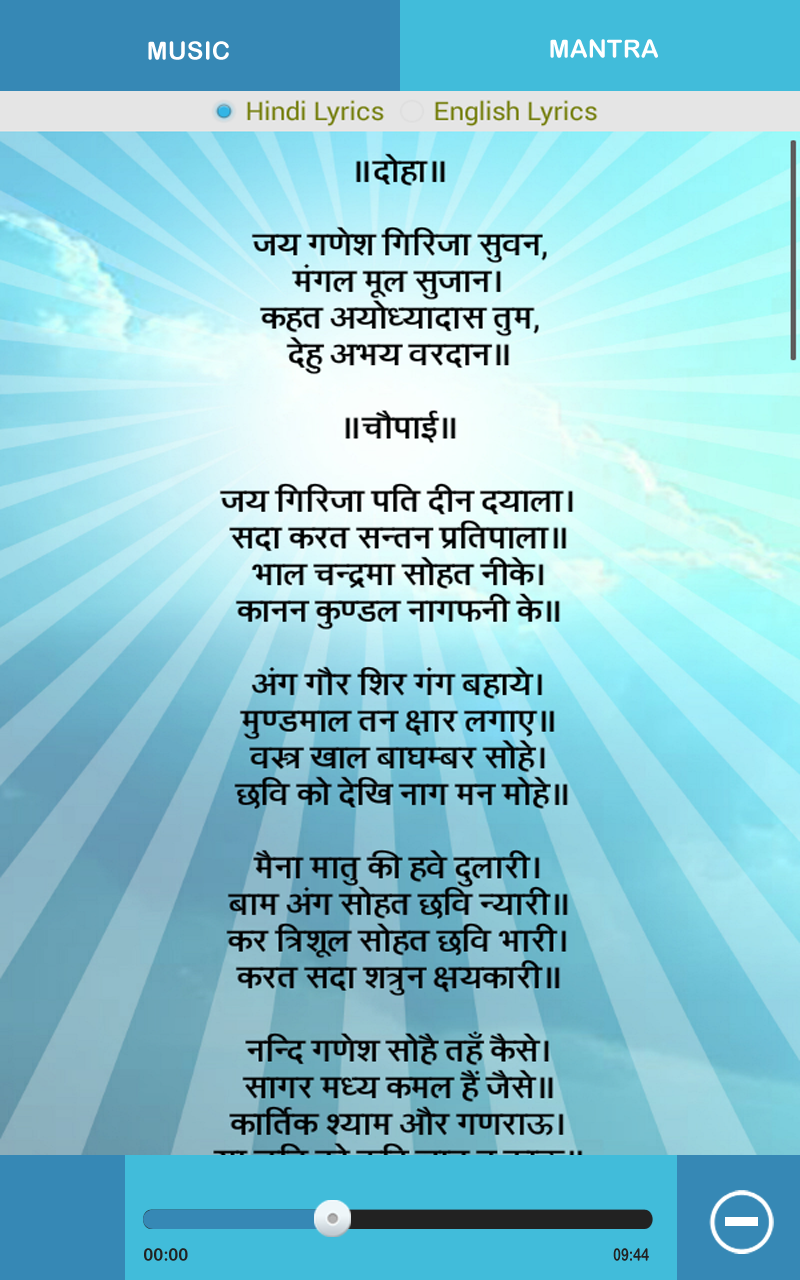 MUSIC
MANTRA
Hindi Lyrics
English Lyrics
॥दोहा॥
जय गणेश गिरिजा सुवन,
मंगल मूल सुजान।
कहत अयोध्यादास तुम,
देहु अभय वरदान॥
॥चौपाई॥
जय गिरिजा पति दीन दयाला।
सदा करत सन्तन प्रतिपाला॥
भाल चन्द्रमा सोहत नीके।
कानन कुण्डल नागफनी के॥
अंग गौर शिर गंग बहाये।
मुण्डमाल तन क्षार लगाए॥
वस्त्र खाल बाघम्बर सोहे।
छवि को देखि नाग मन मोहे॥
मैना मातु की हवे दुलारी।
बाम अंग सोहत छवि न्यारी॥
कर त्रिशूल सोहत छवि भारी।
करत सदा शत्रुन क्षयकारी॥
नन्दि गणेश सोहै तहँ कैसे।
सागर मध्य कमल हैं जैसे॥
कार्तिक श्याम और गणराऊ।
00:00
09:44